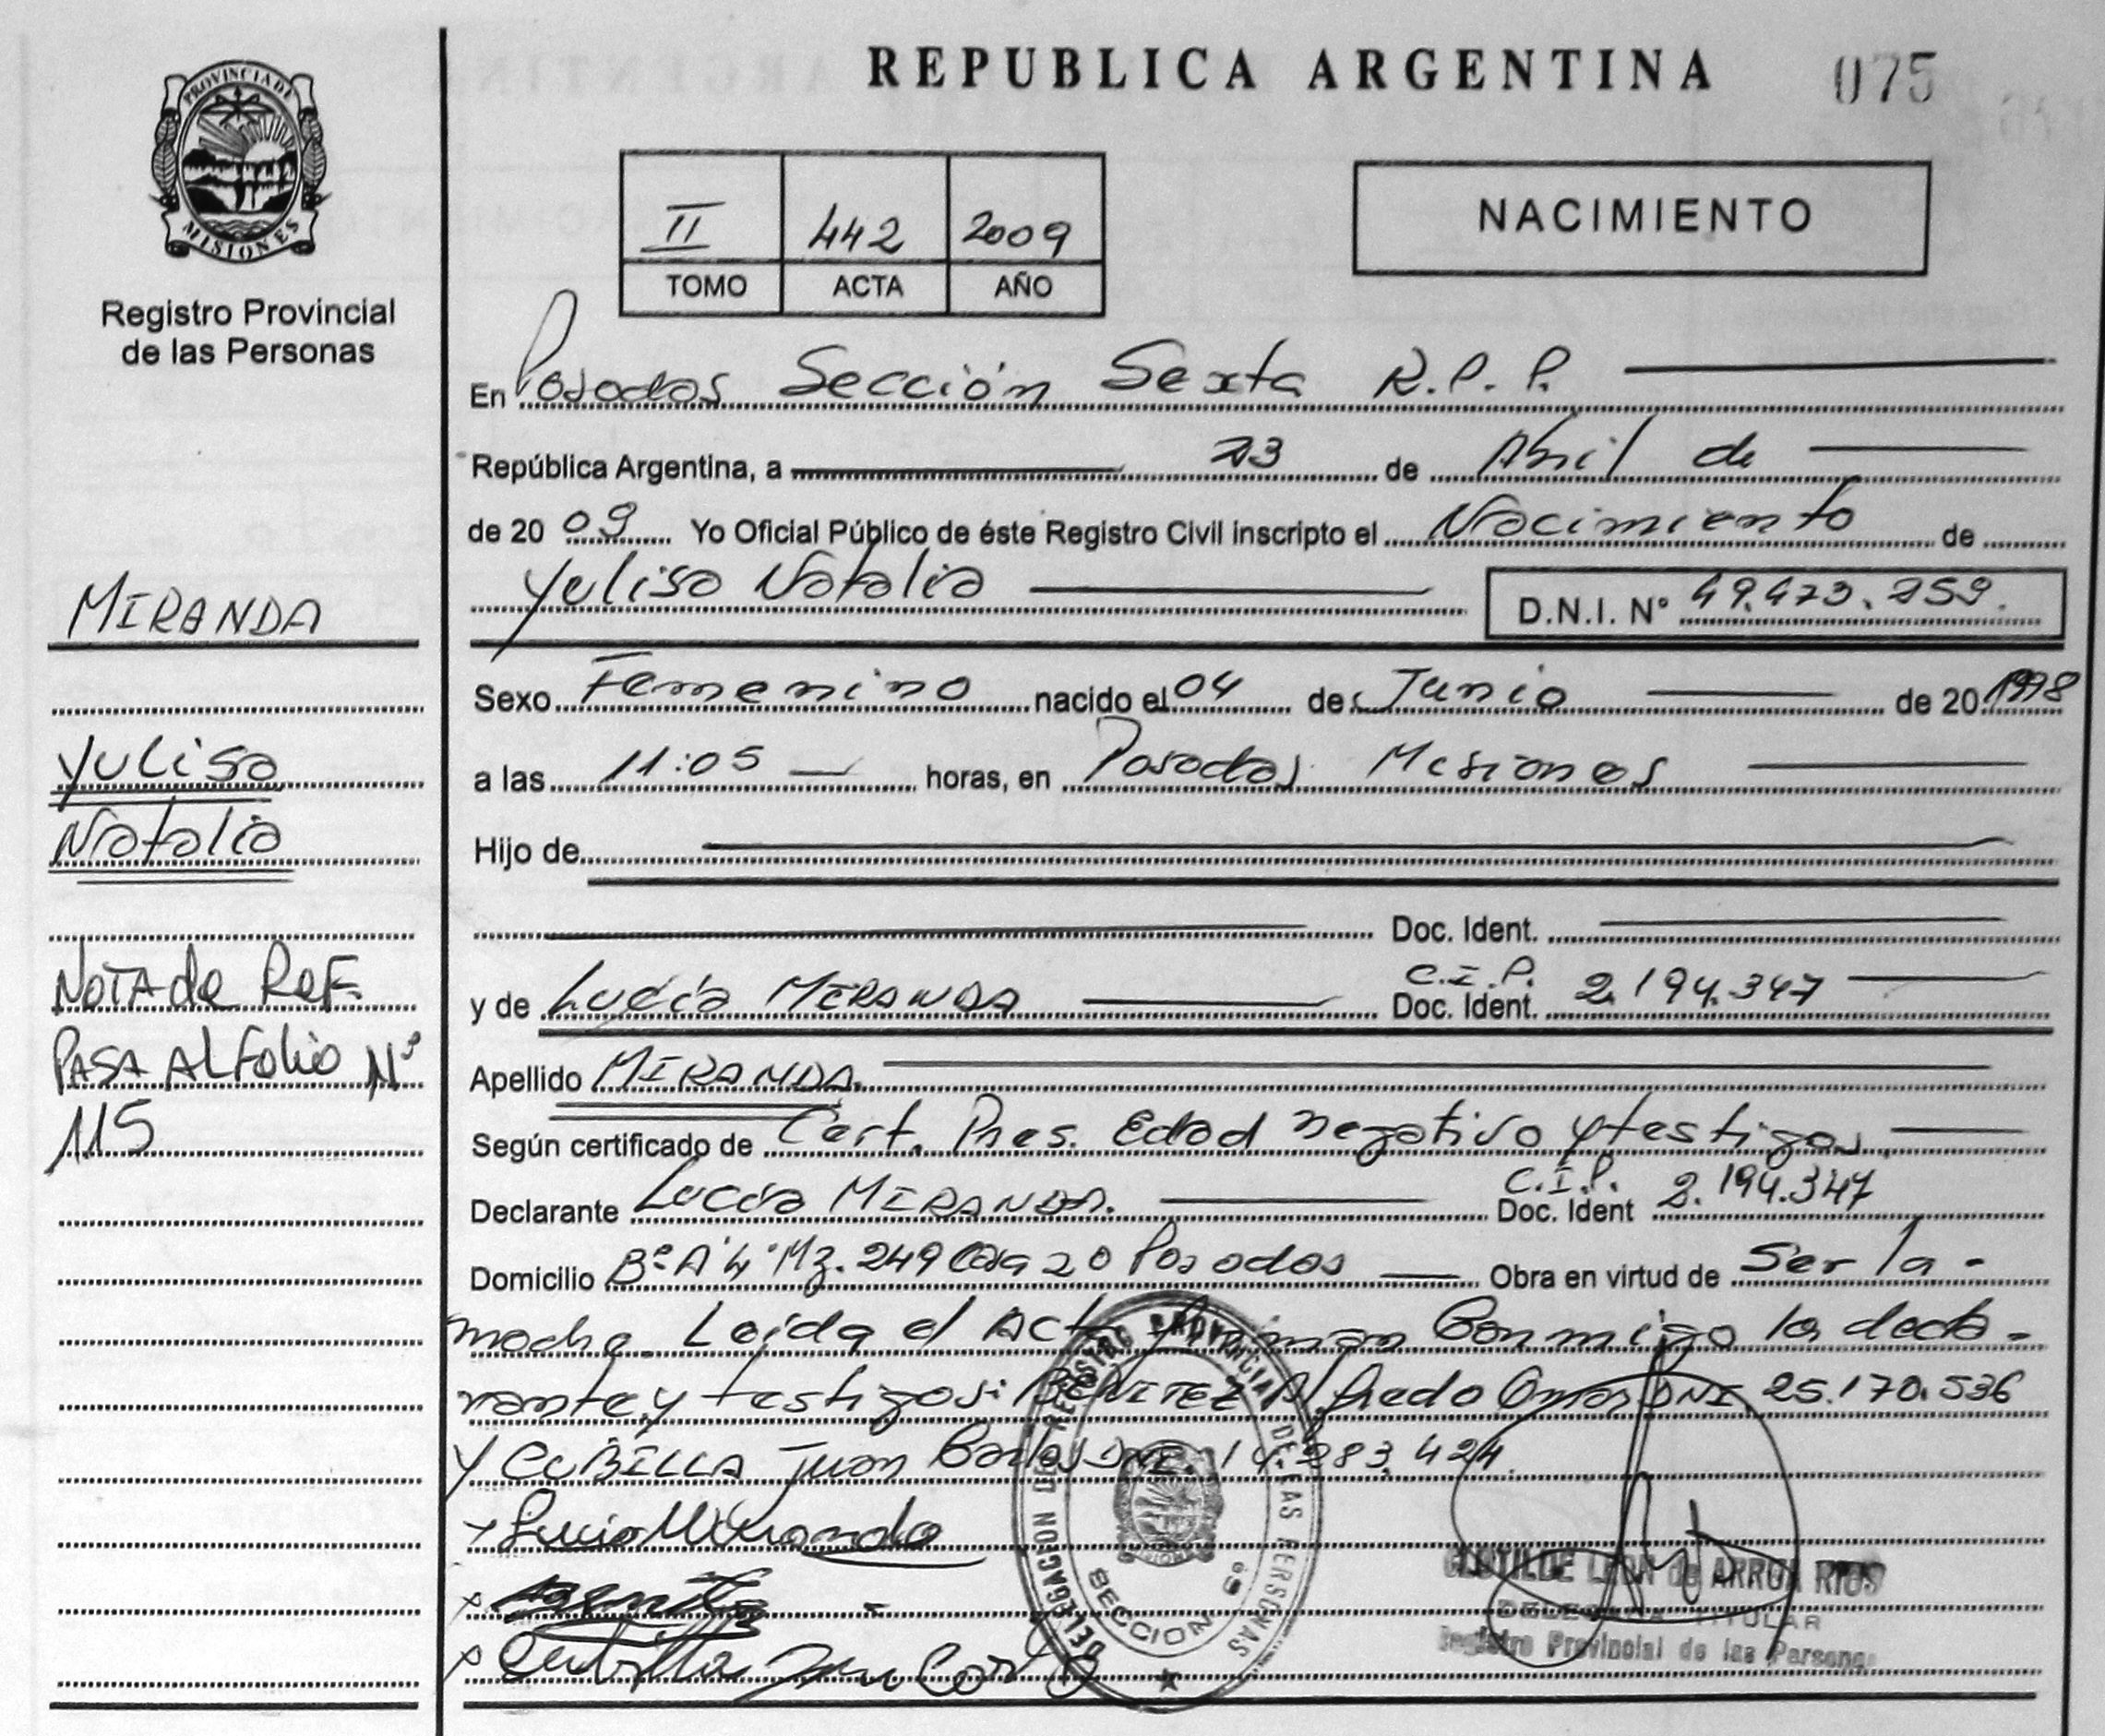 REPUBLICA ARGENTINA
075
PROVINCIA DE
MISIONES
Registro Provincial
de las Personas
II 442 2009
TOMO ACTA AÑO
NACIMIENTO
En Posadas Sección Sexta R.P.P.
República Argentina, a 23 de Abril de
de 20 09 Yo Oficial Público de éste Registro Civil inscripto el Nacimiento de
Yulisa Natalia D.N.I. Nº 49.473.259.
MIRANDA
Yulisa
Natalia
NOTA de REF.
PASA AL Folio Nº
115
Sexo Femenino nacido el 04 de Junio de 20 1998
a las 11:05 horas, en Posadas Misiones
Hijo de
Doc. Ident.
C.I.P.
y de Lucía MIRANDA Doc. Ident. 2.194.347
Apellido MIRANDA.
Según certificado de Cert. Pres. Edad negativo y testigos
C.I.P.
Declarante Lucía MIRANDA. Doc. Ident 2.194.347
Domicilio Bº A 4 Mz. 249 Casa 20 Posadas Obra en virtud de Ser la -
madre. Leída el Acta firman Conmigo la decla-
rante y testigos: BENITEZ Alfredo Omar DNI 25.170.536
Y CUBILLA Juan Carlos DNI. 14.283.424.
Lucia Miranda
Cubilla Juan Carlos
DELEGACION DEL REGISTRO PROVINCIAL DE LAS PERSONAS
SECCION 6º
CLOTILDE LEON de ARRUA RIOS
DELEGADA TITULAR
Registro Provincial de las Personas